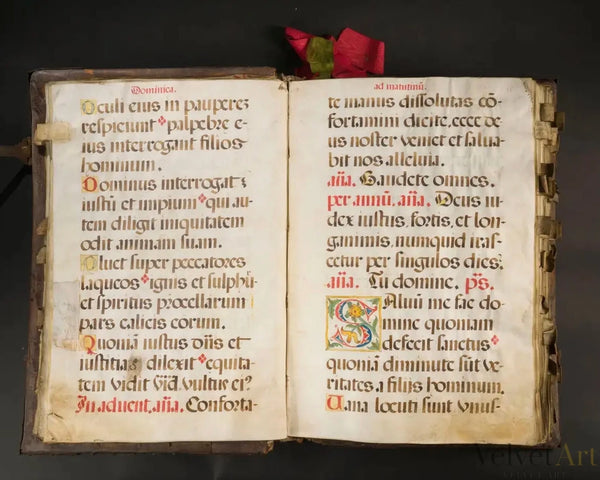 Dominica.
Oculi eius in pauperez
respiciunt palpebre e-
ius interrogant filios
hominum.
Dominus interrogat
iustū et impium qui au-
tem diligit iniquitatem
odit animam suam.
Pluet super peccatores
laqueos ignis et sulphu
et spiritus procellarum
pars calicis eorum.
Quoniā iustus dñs et
iustitias dilexit equita-
tem vidit vultus ei?
In aduent. aña. Conforta-
ad matutinū.
te manus dissolutas cō-
fortamini dicite, ecce de-
us noster veniet et salua-
bit nos alleluia.
aña. Gaudete omnes.
per annū. aña. Deus iu-
dex iustus, fortis, et lon-
ganimis, numquid iras-
cetur per singulos dies?
aña. Tu domine. ps.
Saluū me fac do-
mine quoniam
defecit sanctus
quoniā diminute sūt ve-
ritates a filijs hominum.
Uana locuti sunt vnus-
VelvetArt